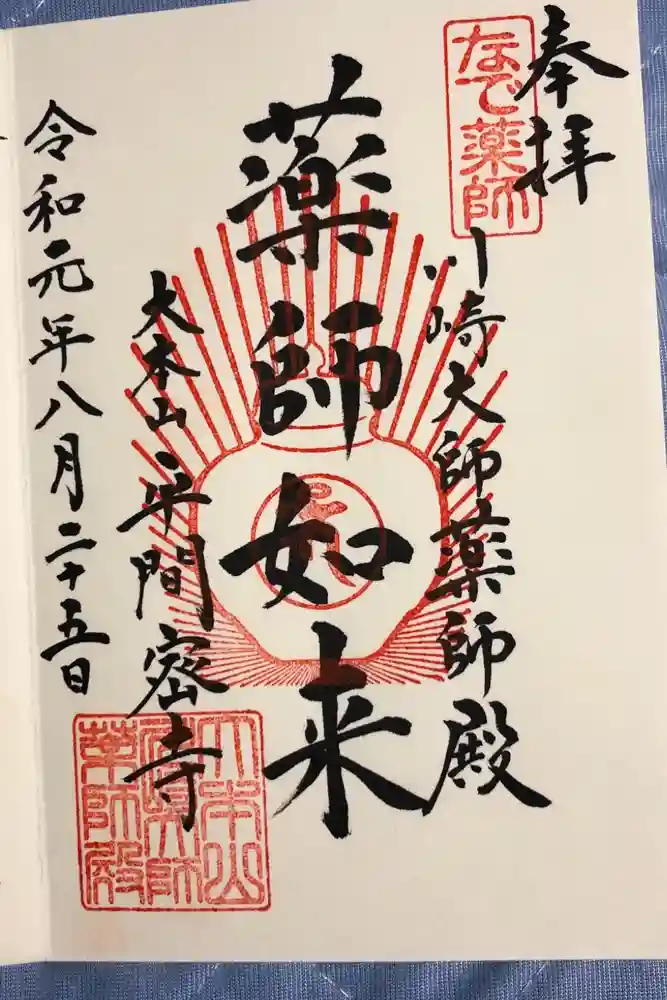 奉拝
なで薬師
川崎大師薬師殿
薬師如来
大本山平間密寺
令和元年八月二十五日
大本山
川崎大師
薬師殿